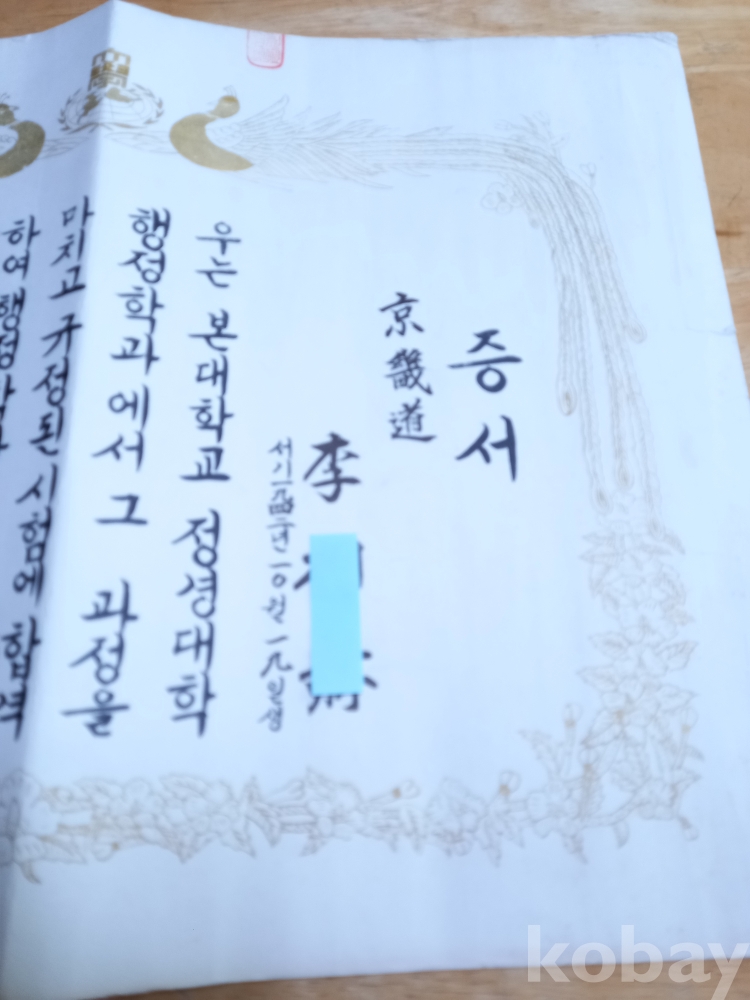 증서
京畿道
李
서기 一0월 一九일생
우는 본대학교 정경대학
행정학과에서 그 과정을
마치고 규정된 시험에 합격
하여
kobay